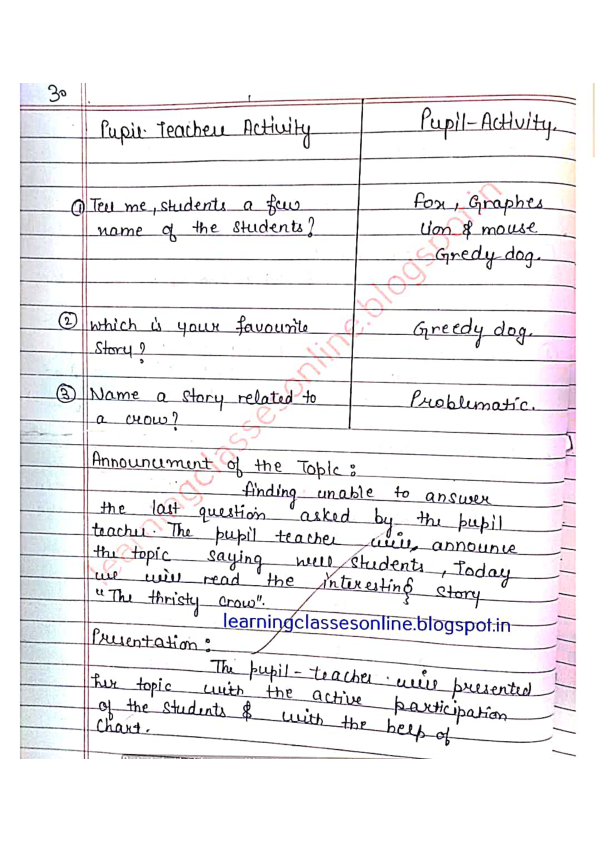 30
Pupil Teacher Activity
Pupil-Activity.
① Tell me, students a few
name of the students?
fox, Graphes
lion & mouse
Gredy dog.
② which is your favourite
story?
Greedy dog.
③ Name a story related to
a crow?
Problematic.
Announcement of the Topic :
finding unable to answer
the last question asked by the pupil
teacher. The pupil teacher will announce
the topic saying well students, Today
we will read the interesting story
"The thristy crow".
learningclassesonline.blogspot.in
Presentation :
The pupil-teacher will presented
her topic with the active participation
of the students & with the help of
chart.
learningclassesonline.blogspot.in